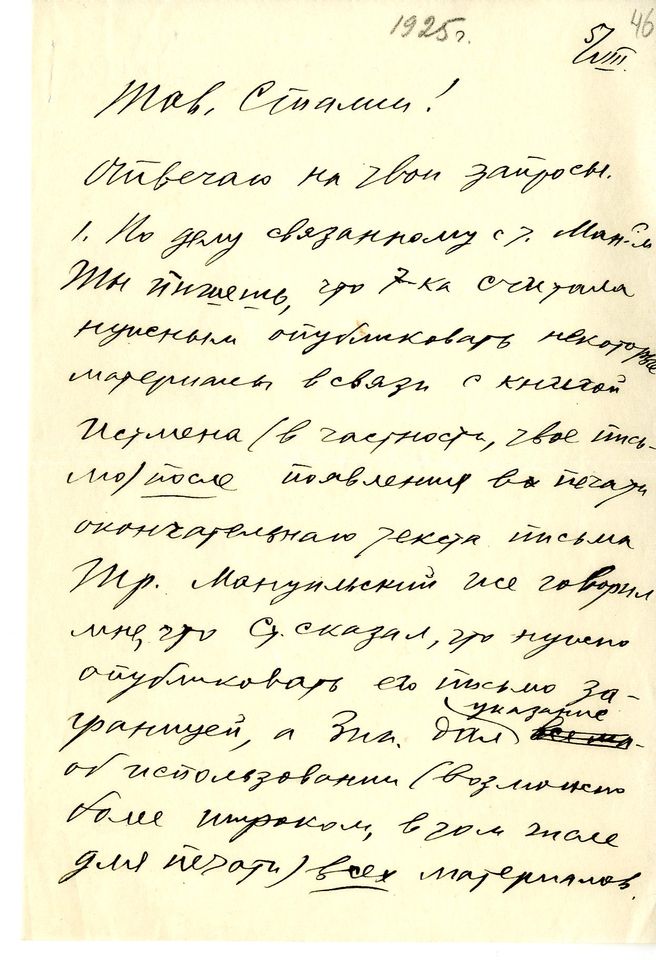 1925 г.
46
5/VIII.
Тов. Сталин!
Отвечаю на твои запросы.
1. По делу связанному с т. Ман-м
Ты пишешь, что 7-ка считала
нужным опубликовать некоторые
материалы в связи с книгой
Истмена (в частности, твое пись-
мо) после появления в печати
окончательнаго текста письма
Тр. Мануильский же говорил
мне, что Ст. сказал, что нужно
опубликовать его письмо за-
границей, а Зин. дал указание
об использовании (возможно
более широком, в том числе
для печати) всех материалов.